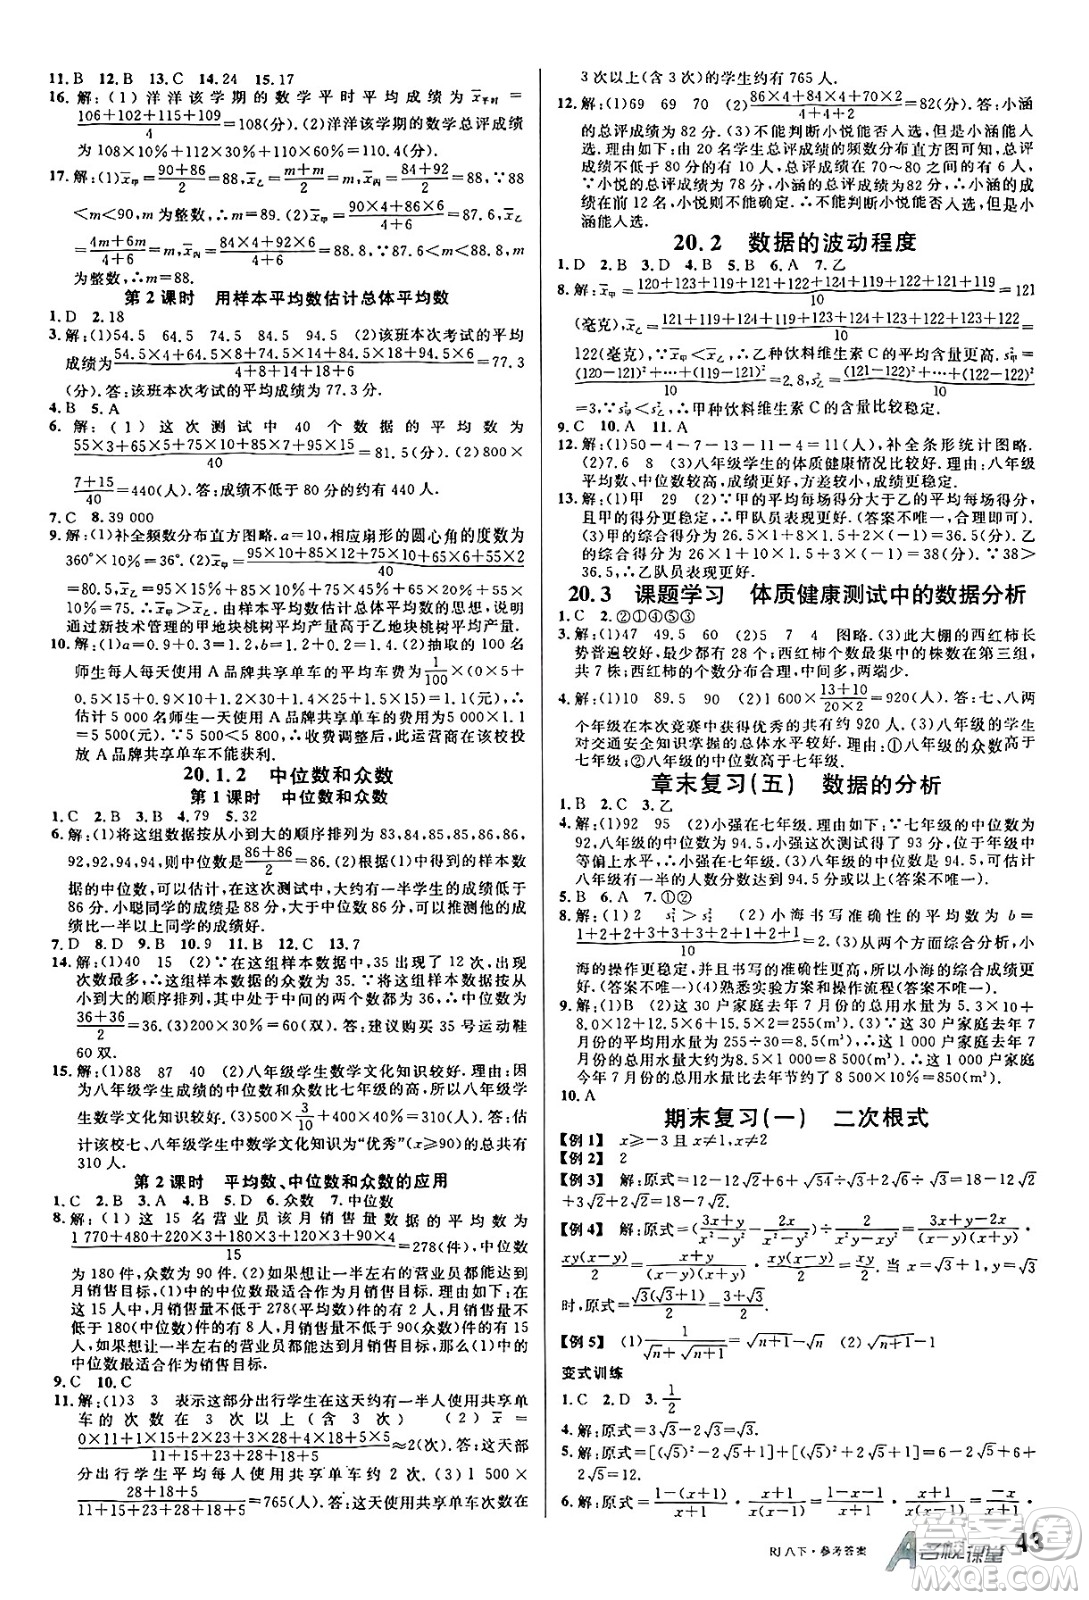 11. B 12. B 13. C 14. 24 15. 17
16. 解:(1)洋洋该学期的数学平时平均成绩为 x̄平时 =
(106+102+115+109)/4 =108(分).(2)洋洋该学期的数学总评成绩
为 108×10%+108×40%+112×50%=110(分).
17. 解:(1)x̄甲=(90+86)/2=88,x̄乙=(m+m)/2=m,x̄丙=(94+82)/2=88.∵88
<m<90,m 为整数,∴m=89.(2)x̄甲=(90×4+86×6)/(4+6)=87.6,x̄乙
=(4m+6m)/(4+6)=m,x̄丙=(94×4+92×6)/(4+6)=88.8.∵87.6<m<88.8,m
为整数,∴m=88.
第 2 课时 用样本平均数估计总体平均数
1. D 2. 18
3. 解:(1)54.5 64.5 74.5 84.5 94.5 (2)该班本次考试的平均
成绩为(54.5×4+64.5×8+74.5×14+84.5×18+94.5×6)/(4+8+14+18+6)=77.3
(分).答:该班本次考试的平均成绩为 77.3 分.
4. B 5. A
6. 解:(1)这次测试中 40 个数据的平均数为
(55×3+65×5+75×7+85×10+95×15)/40=81.5(分).(2)800×
(7+15)/40=440(人).答:成绩不低于 80 分的约有 440 人.
7. C 8. 39 000
9. 解:(1)补全频数分布直方图略.a=10,相应扇形的圆心角的度数为
360°×10%=36°.(2)x̄乙=(95×10+85×12+75×10+65×6+55×2)/20
=80.5.∵x̄甲>x̄乙,∴由样本平均数估计总体平均数的思想,说明
通过新技术管理的甲地块桃树平均产量高于乙地块桃树平均产量.
10. 解:(1)a=1.2+0.3=1.5,b=1.2+0.6=1.8.(2)抽取的 100 名
师生每人每天使用 A 品牌共享单车的平均车费为 1/100×(0×5+
0.5×15+0.9×10+1.2×30+1.5×25+1.8×15)=1.1(元),∴
估计 5 000 名师生一天使用 A 品牌共享单车的总车费为 5 000×1.1
=5 500(元).∵5 500<5 800,∴收费调整后,此运营商在该校投
放 A 品牌共享单车不能获利.
20.1.2 中位数和众数
第 1 课时 中位数和众数
1. C 2. B 3. B 4. 79 5. 32
6. 解:(1)将这组数据按从小到大的顺序排列为 83,84,85,86,86,
92,92,94,94,则中位数是(86+86)/2=86.(2)根据(1)中得到的样本数
据的中位数,可以估计,在这次测试中,大约有一半学生的成绩高于
86 分.小聪同学的成绩是 92 分,大于中位数 86 分,可以推测他的成
绩比一半以上同学的成绩好.
7. D 8. D 9. B 10. 9 11. B 12. C 13. 7
14. 解:(1)40 15 (2)∵在这组样本数据中,35 出现了 12 次,出现
次数最多,∴这组样本数据的众数为 35.∵将这组样本数据按从
小到大的顺序排列,其中处于中间的两个数都为 36,∴中位数为
(36+36)/2=36.(3)200×30%=60(双).答:建议购买 35 号运动鞋
60 双.
15. 解:(1)88 87 40 (2)八年级学生数学文化知识较好.理由:因
为八年级学生成绩的中位数和众数比七年级的高,所以八年级学
生数学文化知识较好.(3)500×3/10+400×40%=310(人).答:估
计该校七、八年级学生中数学文化知识为“优秀”(x≥90)的总共有
310 人.
第 2 课时 平均数、中位数和众数的应用
1. C 2. B 3. A 4. C 5. D 6. 众数 7. 中位数
8. 解:(1)这 15 名营业员该月销售量数据的平均数为
(1 770+480+220×3+180×3+120×3+90×4)/15=278(件),中位数
为 180 件,众数为 90 件.(2)如果想让一半左右的营业员都能达到
月销售目标,(1)中的中位数最适合作为月销售目标.理由如下:∵
在这 15 人中,月销售量不低于 278(平均数)的有 2 人,月销售量不
低于 180(中位数)的有 8 人,月销售量不低于 90(众数)的有 15
人,∴如果想让一半左右的营业员能够达到月销售目标,(1)中的
中位数最适合作为销售目标.
9. C 10. C
11. 解:(1)3 3 表示这部分出行学生在这天约有一半人使用共享单
车的次数在 3 次以上(含 3 次) (2) x̄ =
(0×11+1×15+2×23+3×28+4×18+5×5)/(11+15+23+28+18+5)≈2(次).答:这天部
分出行学生平均每人使用共享单车约 2 次.(3)1 500 ×
(28+18+5)/(11+15+23+28+18+5)=765(人).答:估计这天使用共享单车次数在
3 次以上(含 3 次)的学生约有 765 人.
12. 解:(1)69 69 70 (2)(86×4+84×4+70×2)/(4+4+2)=82(分).答:小涵
的总评成绩为 82 分.(3)不能判断小悦能否入选,小涵能入选.理
由如下:由 20 名学生总评成绩的频数分布直方图可知,总评成绩
不低于 80 分的有 10 人,总评成绩在 70~80 之间的有 6 人.
∵小悦的总评成绩为 78 分,小涵的总评成绩为 82 分,∴小涵的成
绩在前 12 名,小悦则不能确定.∴不能判断小悦能否入选,但是小
涵能入选.
20.2 数据的波动程度
1. D 2. B 3. C 4. B 5. B 6. A 7. 乙
8. 解:x̄甲=(120+120+123+119+121+122+124+119+122+120)/10=121
(毫克),x̄乙=(121+119+124+119+123+124+123+122+123+122)/10=
122(毫克),∴乙种饮料维生素 C 的平均含量高.s²甲=
((120-121)²+…+(120-121)²)/10=2.8,s²乙=((121-122)²+…+(122-122)²)/10
=3,s²甲<s²乙.∴甲种饮料维生素 C 的含量比较稳定.
9. C 10. A 11. A
12. 解:(1)50-4-7-13-11-4=11(人),补全条形统计图略.
(2)7.6 8 (3)八年级学生的体质健康情况比较好.理由:八年级
平均数、中位数较高,成绩更好.
13. 解:(1)甲 29 (2)∵甲的平均每场得分大于乙的平均每场得分,
且甲的得分更稳定,∴甲队员表现更好.(答案不唯一,合理即可)
(3)甲的综合得分为 26.5×1+8×1.5+2×(-1)=36.5,
乙的综合得分为 26×1+10×1.5+3×(-1)=38.∵38>
36.5,∴乙队员表现更好.
20.3 课题学习 体质健康测试中的数据分析
1. C 2. ②①④⑤③
3. 解:(1)47 49.5 60 (2)5 7 4 图略.(3)此大棚的西红柿长
势普遍较好,最少都有 28 个;西红柿个数最集中的株数在第三组,
共 7 株;西红柿的个数分布合理,中间多,两端少.
4. 解:(1)10 89.5 90 (2)1 600×(13+10)/(20×2)=920(人).答:七、八两
个年级在本次竞赛中获得优秀的约有 920 人.(3)八年级的学生
对交通安全知识掌握的总体水平较好.理由:①八年级的众数高于
七年级;②八年级的中位数高于七年级.
章末复习(五) 数据的分析
1. B 2. C 3. 乙
4. 解:(1)92 95 (2)小强在七年级.理由如下:∵七年级的中位数为
92,八年级的中位数为 94.5,小强的成绩为 93 分,在年级属于中
等偏上水平,∴小强在七年级.(3)八年级的中位数是 94.5,估计
八年级有一半的人数分数达到 94.5 分或以上(答案不唯一).
5. B 6. A 7. ①②
8. 解:(1)2 s²₁>s²₂ (2)小海书写准确性的平均数为 b=
(1+2+2+2+3+1+3+3+2+1)/10=2.(3)从两个方面综合分析,小
海的操作更稳定,书写准确性更高,所以小海的综合成绩更
好.(答案不唯一)(4)熟悉实验方案和操作流程(答案不唯一)
9. 解:(1)B (2)这 30 户家庭去年 7 月份的总用水量为 5.3×10+
8.0×12+12.5×4+14×2+15+13=255(m³).∵这 30 户家庭去年
7 月份的总用水量为 255 m³,∴这 1 000 户家庭去年 7
月份的总用水量约为 255÷30×1 000=8 500(m³),∴这 1 000 户家庭
今年 7 月份的总用水量比去年 7 月份节约了 8 500×10%=850(m³).
10. A
期末复习(一) 二次根式
【例 1】 x≥-3 且 x≠1,x≠2
【例 2】 2
【例 3】 解:原式=12-12√2+6-√5×√15+√54÷√3=18-12√2
+3√2+3√2-5√3=18-7√2.
【例 4】 解:原式=((3x+y)/(x²-y²)-2x/(x²-y²))÷2/(xy(x-y))=(3x+y-2x)/(x²-y²)·
xy(x-y)/2=(x+y)/((x+y)(x-y))·xy(x-y)/2=xy/2.当 x=√3+1,y=√3
时,原式=√3(√3+1)/2=(3+√3)/2.
【例 5】 (1)1/(√n+√(n+1))=√(n+1)-√n (2)√(n+1)-1
变式训练
1. C 2. D 3. 1/2
4. 解:原式=3√3-2√3=√3.
5. 解:原式=[(√5)²-(√2)²]+[(√5)²-2√5+1]=3+5-2√5+1+6+
2√5=12.
6. 解:原式=(1-(x+1))/(x+1)·(x+1)/(x(x-1))=(1-x-1)/(x+1)·(x+1)/(x(x-1))=-x/(x+1)·
RJ 八下·参考答案
名校课堂
43
答案圈
MXQE.COM